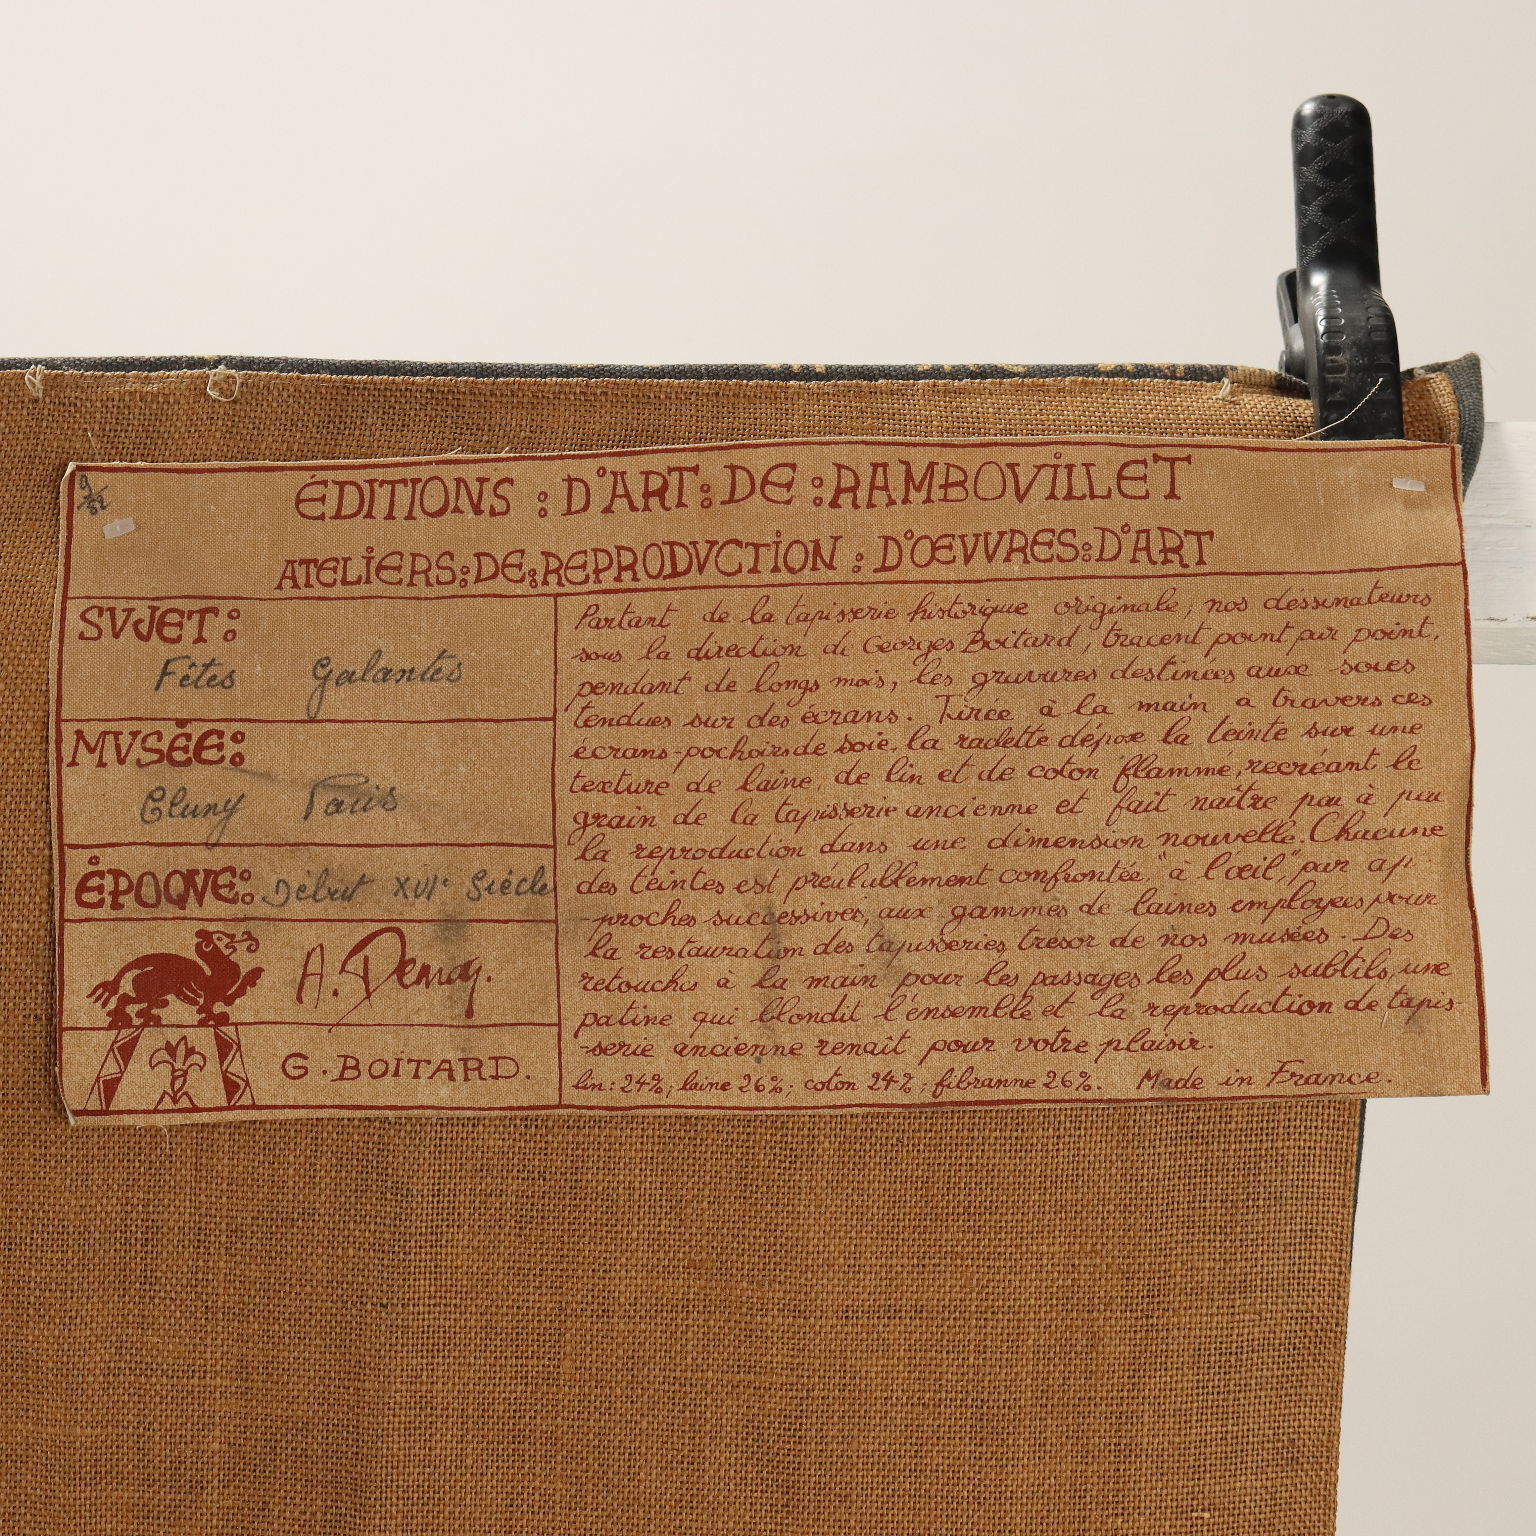 ÉDITIONS : D'ART : DE : RAMBOVILLET
ATELIERS : DE : REPRODVCTION : D'ŒVVRES : D'ART
SVJET :
Fêtes Galantes
MVSÉE :
Cluny Paris
ÉPOQVE : Début XVIe Siècle
G. BOITARD.
Partant de la tapisserie historique originale, nos dessinateurs
sous la direction de Georges Boitard, tracent point par point,
pendant de longs mois, les gravures destinées aux soies
tendues sur des écrans. Tirée à la main a travers ces
écrans-pochoirs de soie, la raclette dépose la teinte sur une
texture de laine, de lin et de coton flammé, recréant le
grain de la tapisserie ancienne et fait naître peu à peu
la reproduction dans une dimension nouvelle. Chacune
des teintes est préalablement confrontée, "à l'œil", par ap-
-proches successives, aux gammes de laines employées pour
la restauration des tapisseries trésor de nos musées. Des
retouches à la main pour les passages les plus subtils, une
patine qui blondit l'ensemble et la reproduction de tapis-
-serie ancienne renaît pour votre plaisir.
lin : 24% ; laine 26% ; coton 24% ; fibranne 26%. Made in France.